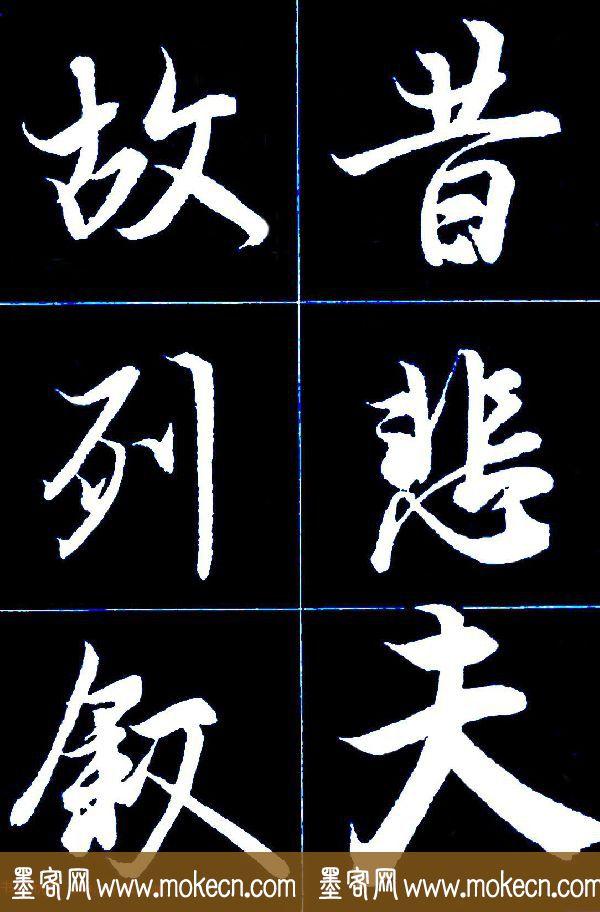 昔悲夫
故列叙
墨客网 www.mokecn.com 墨客网 www.mokecn.com